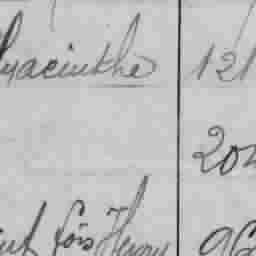 Hyacinthe 121
204
fois Henry 96